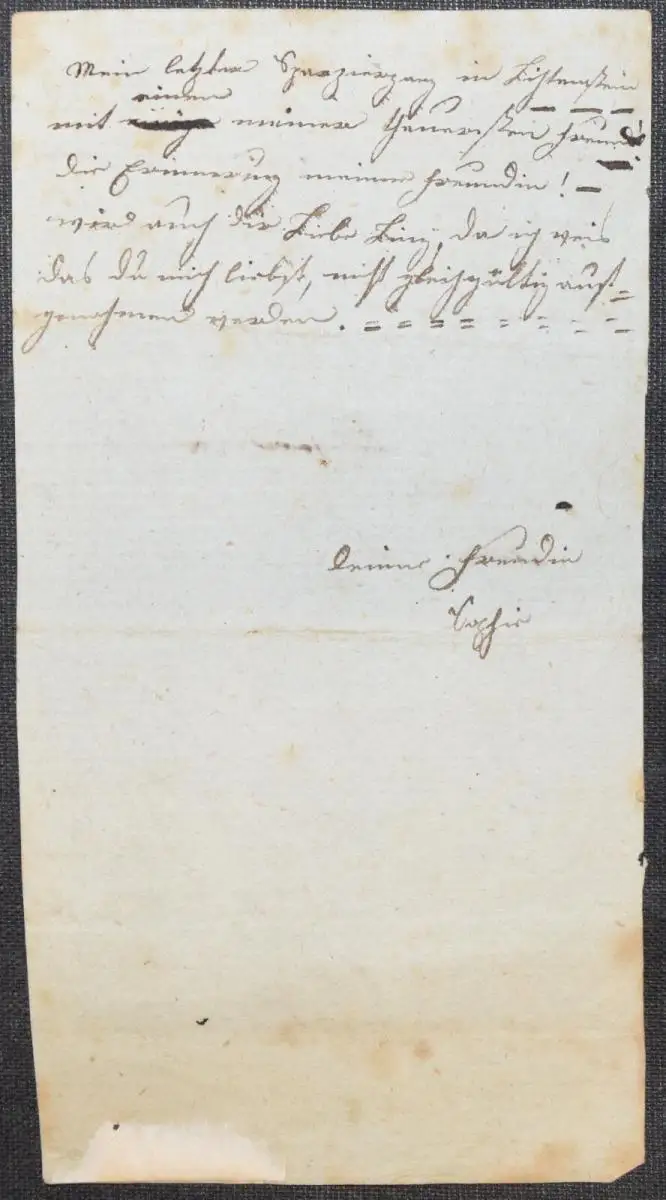 Mein letzter Sparziergang in Lichtenstein
einem
mit meiner theuersten Freundin!
die Erinnerung meiner Freundin! –
wird auch dir Liebe Liny, da ich weis
das du mich liebst, nicht gleichgültig auf=
genohmen werden. = = = = = = = =
deine Freundin
Sophie